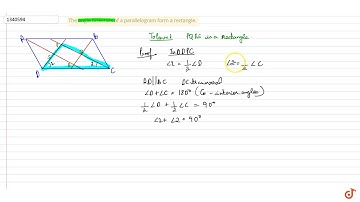 1340594
The angle bisectors of a parallelogram form a rectangle.
To prove: PQRS is a rectangle
Proof: In ΔDPC
∠1 = 1/2 ∠D ∠2 = 1/2 ∠C
AD||BC DC transversal
∠D + ∠C = 180° (Co-interior angles)
1/2 ∠D + 1/2 ∠C = 90°
∠1 + ∠2 = 90°
A B
D C